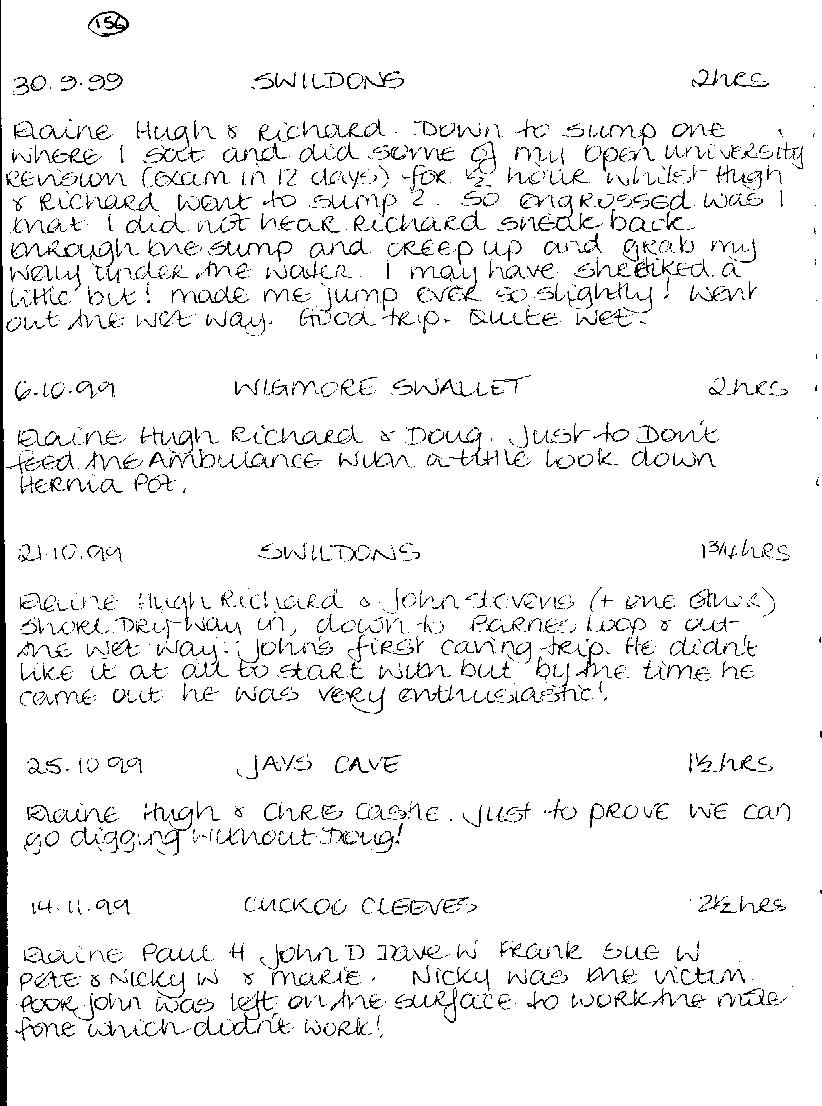 156
30.9.99 SWILDONS 2hrs
Elaine Hugh & Richard. Down to sump one
where I sat and did some of my Open University
Revision (exam in 12 days) for ½ hour whilst Hugh
& Richard went to sump 2. So engrossed was I
that I did not hear Richard sneak back
through the sump and creep up and grab my
welly under the water. I may have shreiked a
little but! made me jump ever so slightly! Went
out the wet way. Good trip. Quite wet.
6.10.99 WIGMORE SWALLET 2hrs
Elaine Hugh Richard & Doug. Just to Don't
feed the Ambulance with a little look down
Hernia Pot.
21.10.99 SWILDONS 1¾hrs
Elaine Hugh Richard & John Stevens (+ one other)
Short Dry Way in, down to Barnes Loop & out
the wet way. Johns first caving trip. He didn't
like it at all to start with but by the time he
came out he was very enthusiastic!
25.10.99 JAYS CAVE 1½hrs
Elaine Hugh & Chris Castle. Just to prove we can
go digging without Doug!
14.11.99 CUCKOO CLEEVES 2½hrs
Elaine Paul H John D Dave W Frank Sue W
Pete & Nicky W & Marie. Nicky was the victim.
Poor John was left on the surface to work the mole
fone which didn't work!